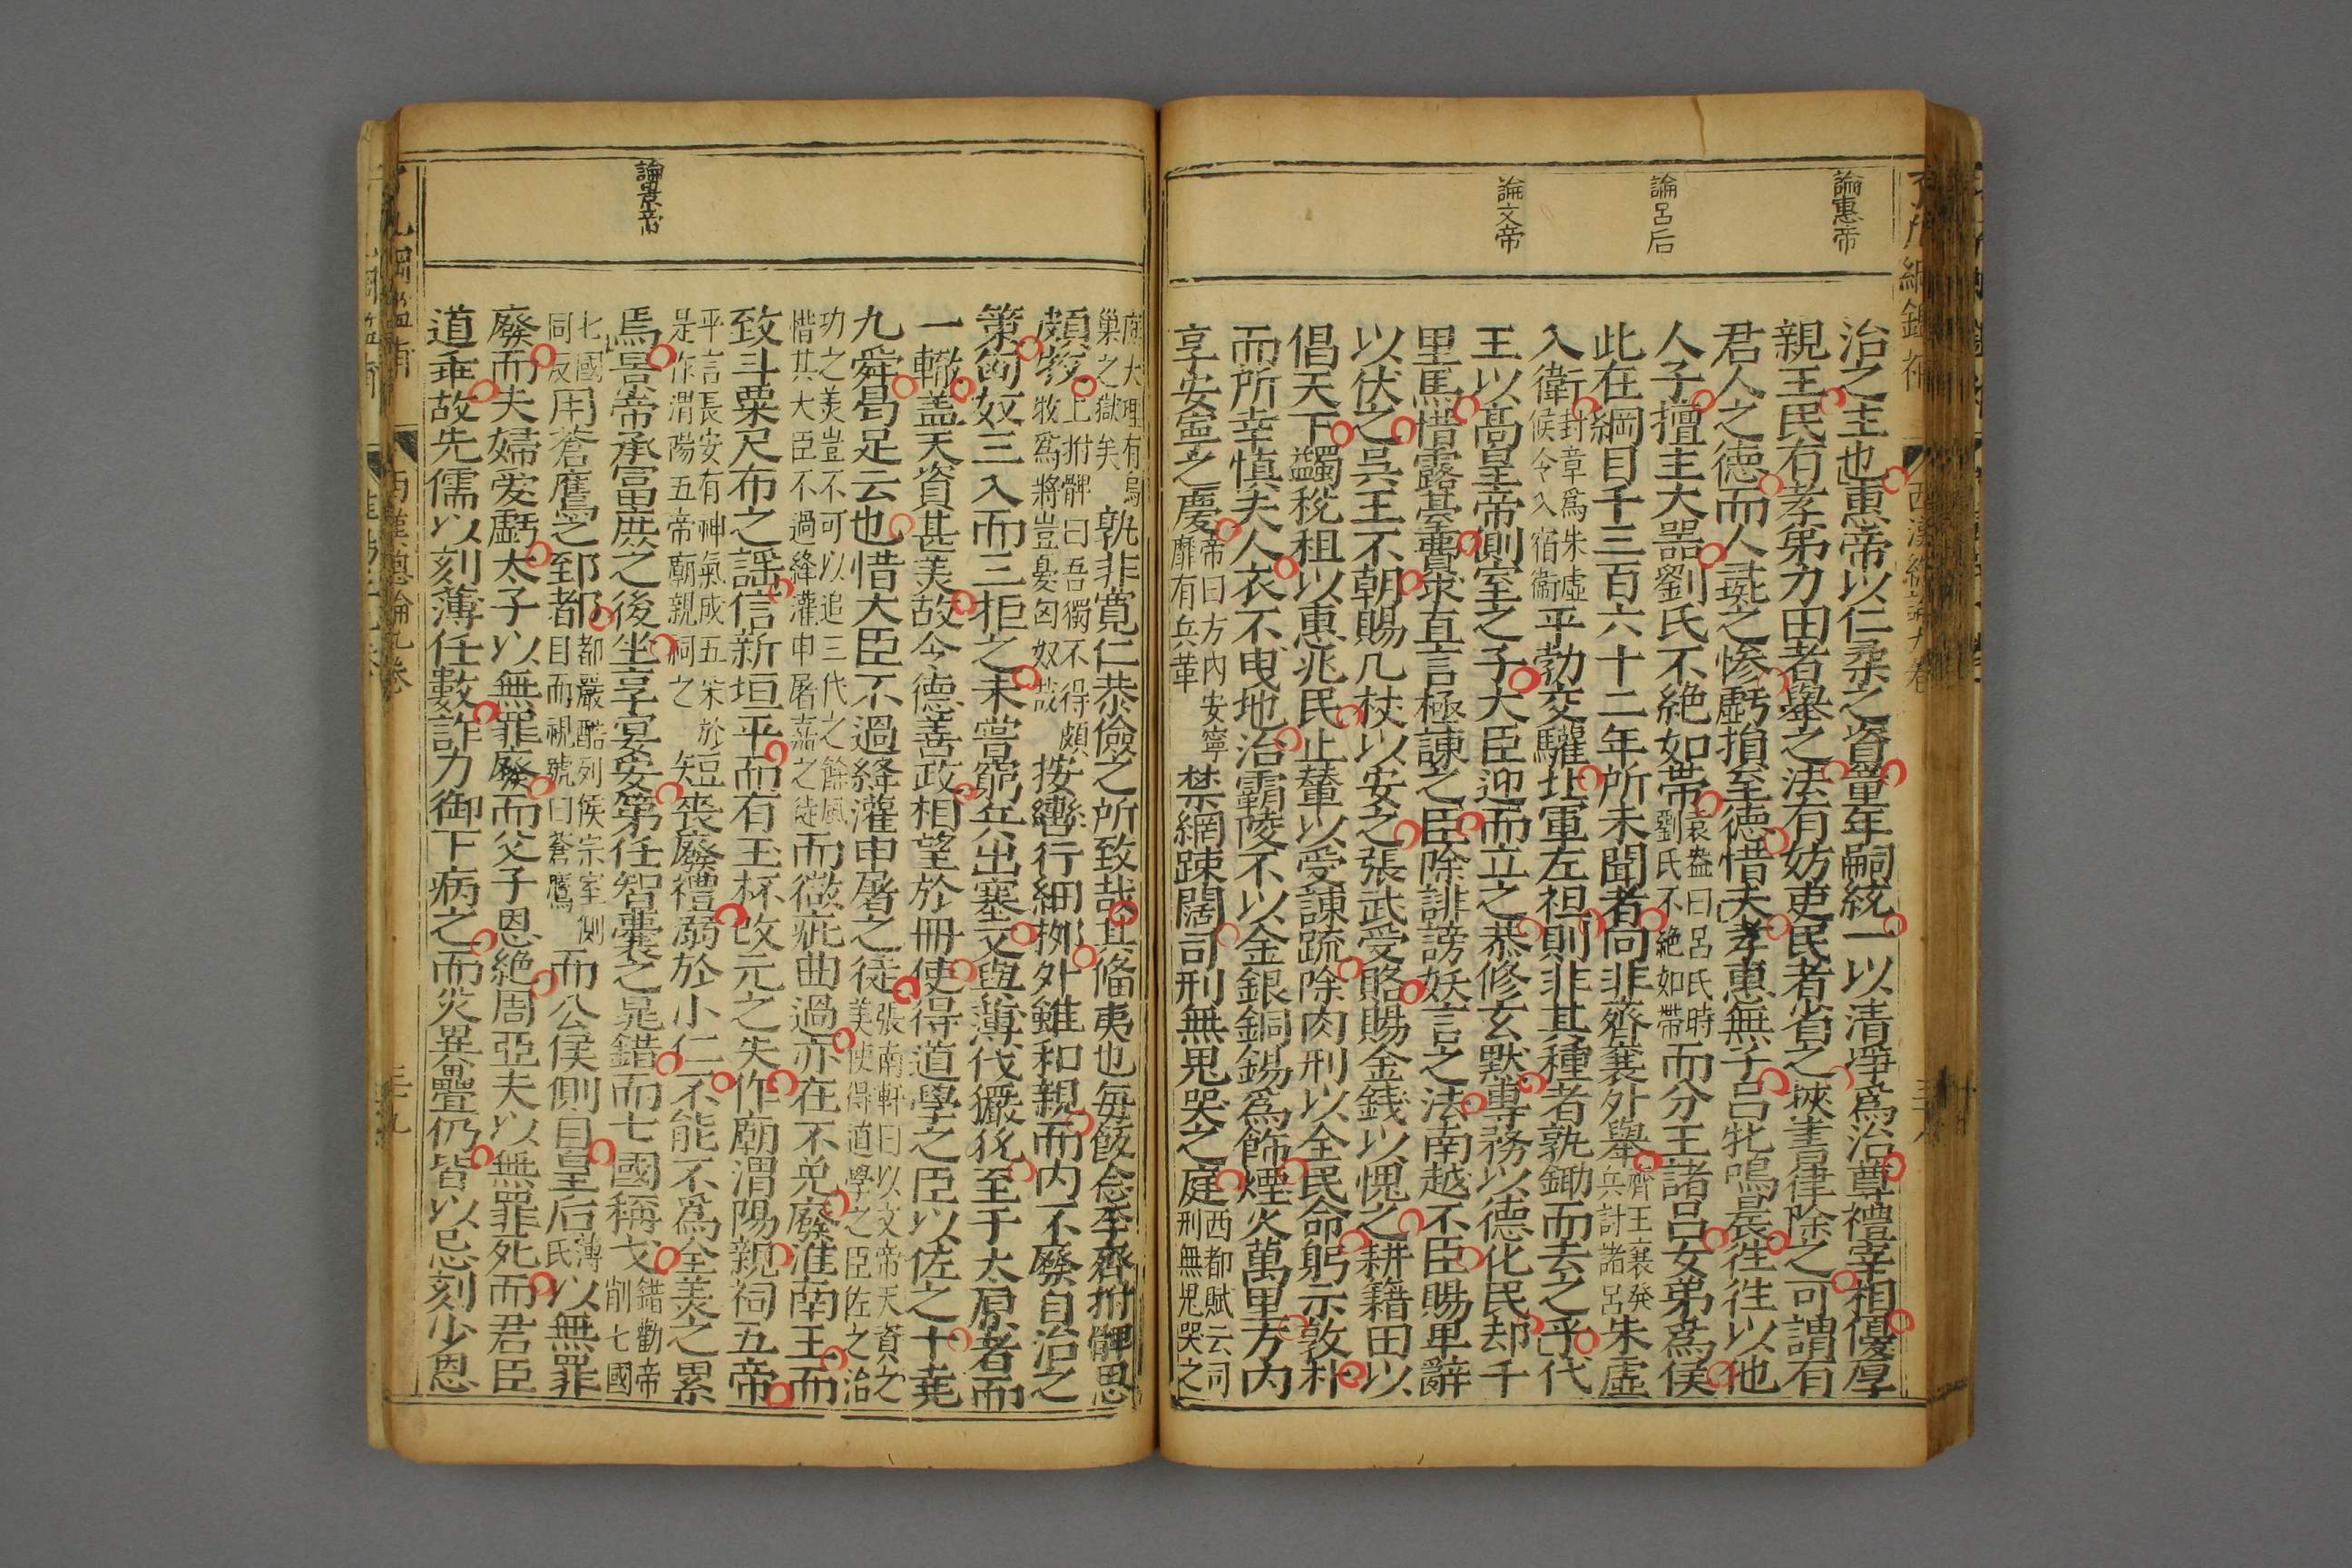 論惠帝
論呂后
論文帝
治之主也惠帝以仁柔之資童年嗣統一以清淨爲治尊禮宰相優厚
親王民有孝弟力田者舉之法有妨吏民者省之挾書律除之可謂有
君人之德而人彘之慘虧損至德惜夫孝惠無子呂牝鳴晨往往以他
人子擅主大器劉氏不絶如帶
袁盎曰呂氏時
劉氏不絶如帶
而分王諸呂女弟爲侯
此在綱目千三百六十二年所未聞者向非齊襄外舉
齊王襄發
兵討諸呂
朱虛
入衛
封章爲朱虛
候令入宿衞
平勃交驩北軍左袒則非其種者孰鋤而去之乎代
王以高皇帝側室之子大臣迎而立之恭修玄默專務以德化民却千
里馬惜露臺費求直言極諫之臣除誹謗妖言之法南越不臣賜卑辭
以伏之吳王不朝賜几杖以安之張武受賂賜金錢以愧之耕籍田以
倡天下蠲稅租以惠兆民止輦以受諫疏除肉刑以全民命躬示敦朴
而所幸愼夫人衣不曳地治霸陵不以金銀銅錫爲飾煙火萬里方內
享安寧之慶
帝曰方內安寧
靡有兵革
禁網踈闊司刑無冤哭之庭
西都賦云司
刑無冤哭之
西漢總論九卷
三十八
論景帝
庭大理有烏
巢之獄矣
孰非寬仁恭儉之所致哉其備夷也每飯念李齊拊髀思
頗牧
上拊髀曰吾獨不得頗
牧爲將豈憂匈奴哉
按轡行細栁外雖和親而內不廢自治之
策匈奴三入而三拒之未嘗窮兵出塞又與薄伐玁狁至于太原者而
一轍蓋天資甚美故今德善政相望於冊使得道學之臣以佐之十堯
九舜曷足云也惜大臣不過絳灌申屠之徒
張南軒曰以文帝天資之
美使得道學之臣佐之治
功之美豈不可以追三代之餘風
惜其大臣不過絳灌申屠嘉之徒
而微疵曲過亦在不免廢淮南王而
致斗粟尺布之謡信新垣平而有玉杯改元之失作廟渭陽親祠五帝
平言長安有神氣成五采於
是作渭陽五帝廟親祠之
短喪廢禮溺於小仁不能不爲全美之累
焉景帝承富庶之後坐享宴安第任智囊之晁錯而七國稱戈
錯勸帝
削七國
七國
同反
用蒼鷹之郅都
都嚴酷列候宗室側
目而視號曰蒼鷹
而公侯側目皇后
薄
氏
以無罪
廢而夫婦愛虧太子以無罪廢而父子恩絶周亞夫以無罪死而君臣
道乖故先儒以刻薄任數詐力御下病之而災異疊仍皆以忌刻少恩
西漢總論九卷
三十九